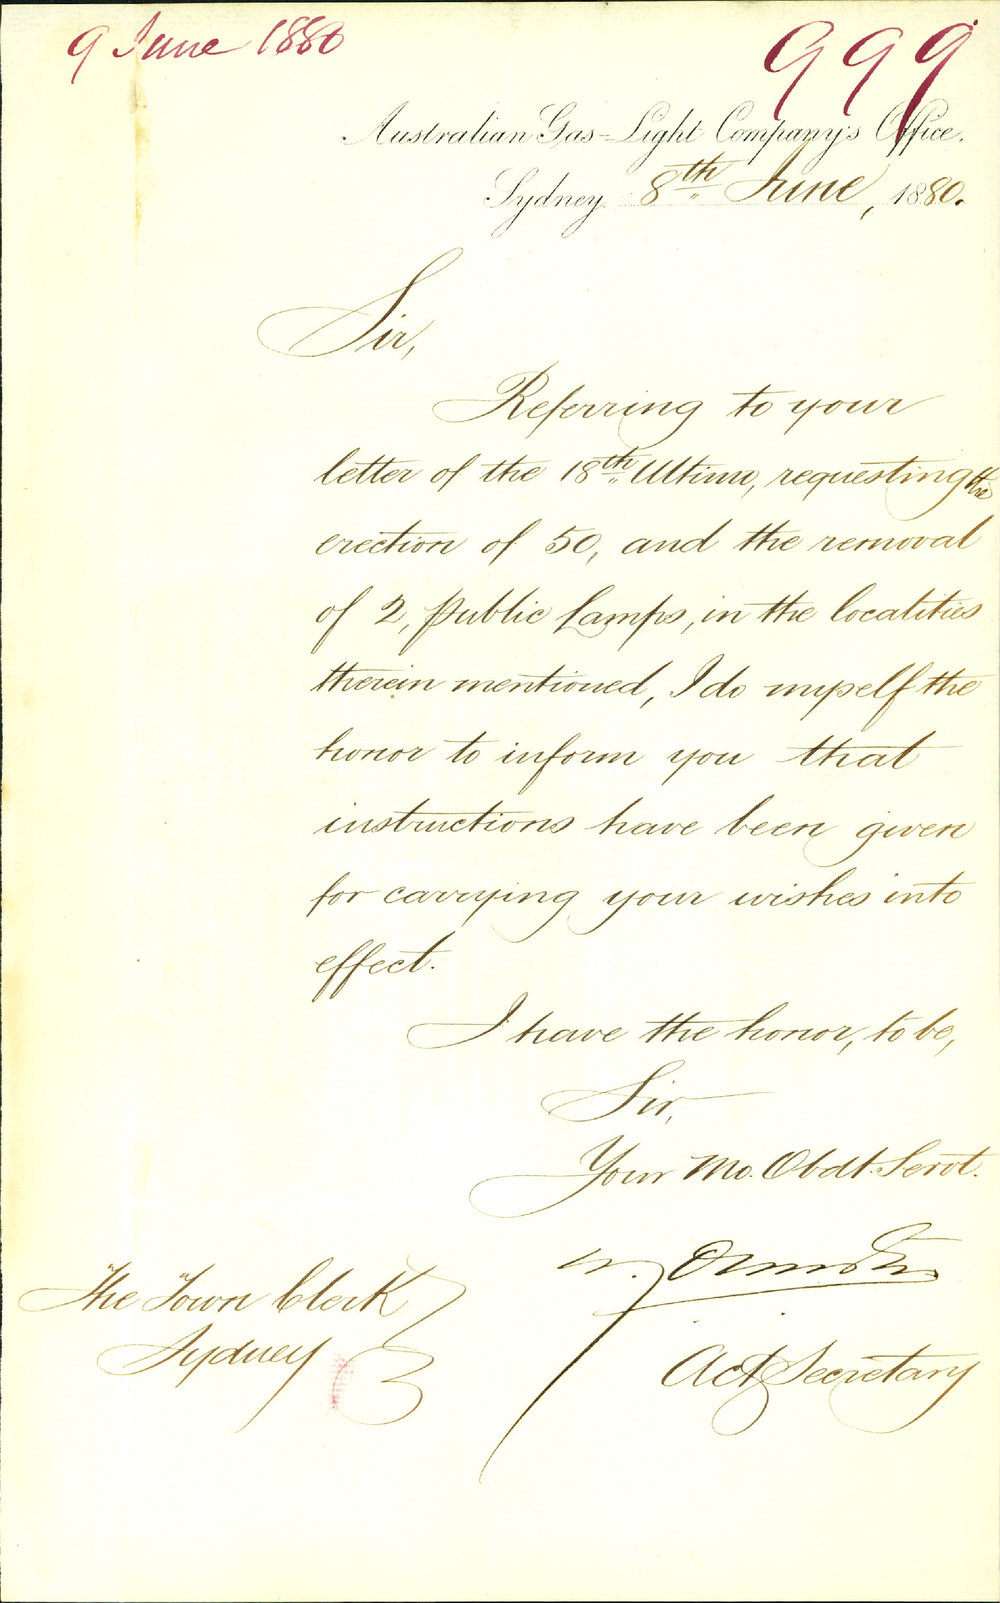 9 June 1880
999
Australian Gas-Light Company's Office.
Sydney 8th June, 1880.
Sir,
Referring to your
letter of the 18th Ultimo, requesting the
erection of 50, and the removal
of 2, Public Lamps, in the localities
therein mentioned, I do myself the
honor to inform you that
instructions have been given
for carrying your wishes into
effect.
I have the honor, to be,
Sir,
Your Mo. Obdt. Servt.
W.
Act Secretary
The Town Clerk
Sydney